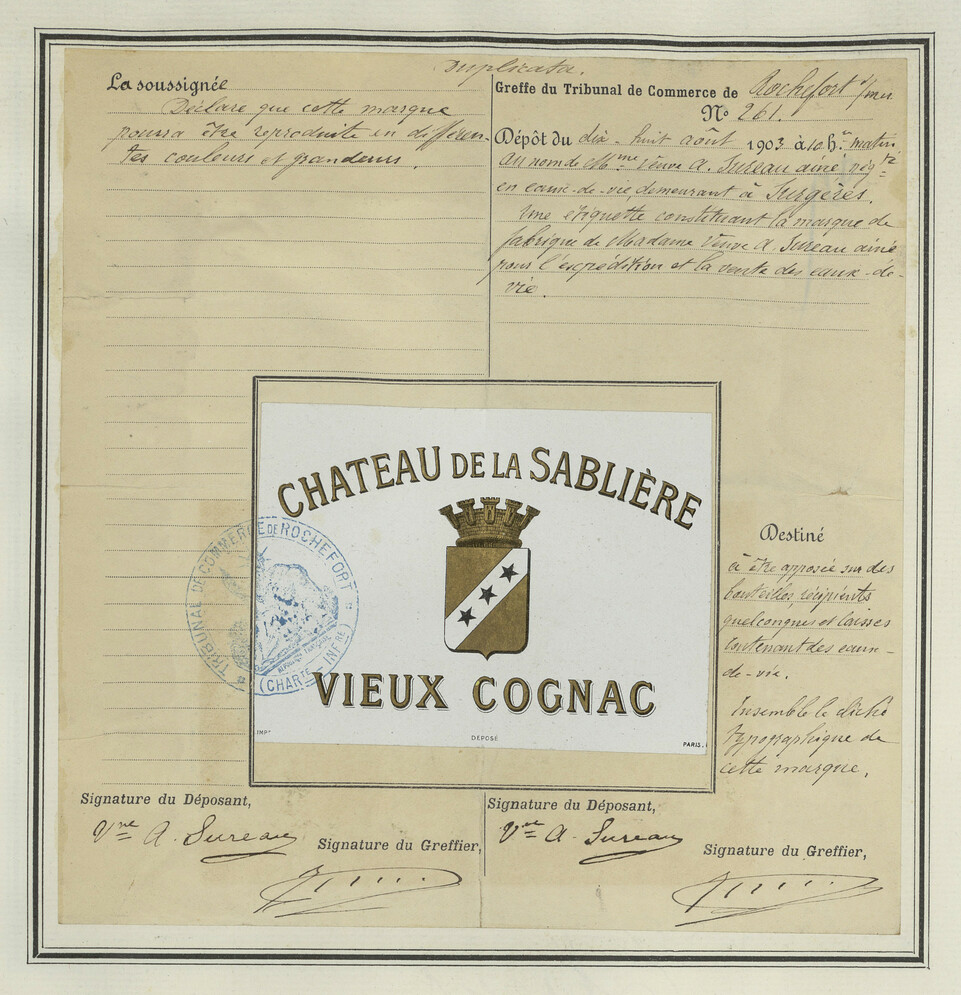 Duplicata.
La soussignée
Déclare que cette marque
pourra être reproduite en différen-
tes couleurs et grandeurs.
Greffe du Tribunal de Commerce de Rochefort s/mer
No 261.
Dépôt du dix-huit août 1903 à 10 h. matin
au nom de Mme Veuve A. Sureau ainé négte
en eaux-de-vie, demeurant à Surgères.
Une étiquette constituant la marque de
fabrique de Madame Veuve A. Sureau ainé
pour l'expédition et la vente des eaux-de-
vie.
CHATEAU DE LA SABLIÈRE
VIEUX COGNAC
IMP.
DÉPOSÉ
PARIS.
TRIBUNAL DE COMMERCE DE ROCHEFORT
RÉPUBLIQUE FRANÇAISE
(CHARTE-INFRE)
Destiné
à être apposée sur des
bouteilles, récipients
quelconques et caisses
contenant des eaux-
de-vie.
Ensemble le cliché
typographique de
cette marque.
Signature du Déposant,
Vve A. Sureau
Signature du Greffier,
Signature du Déposant,
Vve A. Sureau
Signature du Greffier,